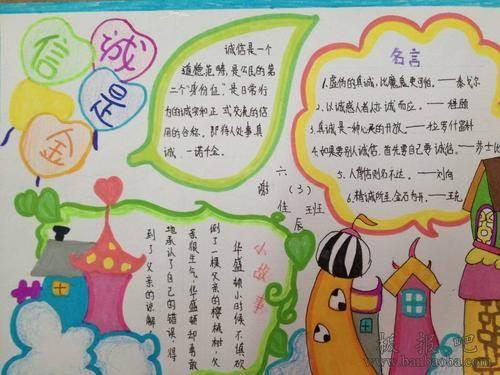 诚信是金
诚信是一个
道德范畴,是公民的第
二个"身份证",是日常行
为的诚实和正式交流的信
用的合称。即待人处事真
诚、一诺千金。
名言
1.虚伪的真诚,比魔鬼更可怕。——泰戈尔
2.以诚感人者,人亦诚而应。——程颐
3.真诚是一种心灵的开放。——拉罗什富科
4.如果要别人诚信,首先要自己要诚信。——莎士比
5.人背信则名不达。——刘向
6.精诚所至,金石为开。——王充
六(3)班
谢佳辰
小故事
华盛顿小时候不慎砍
倒了一棵父亲的樱桃树,父
亲很生气,华盛顿却勇敢
地承认了自己的错误,得
到了父亲的谅解
板报吧
www.banbaoba.com